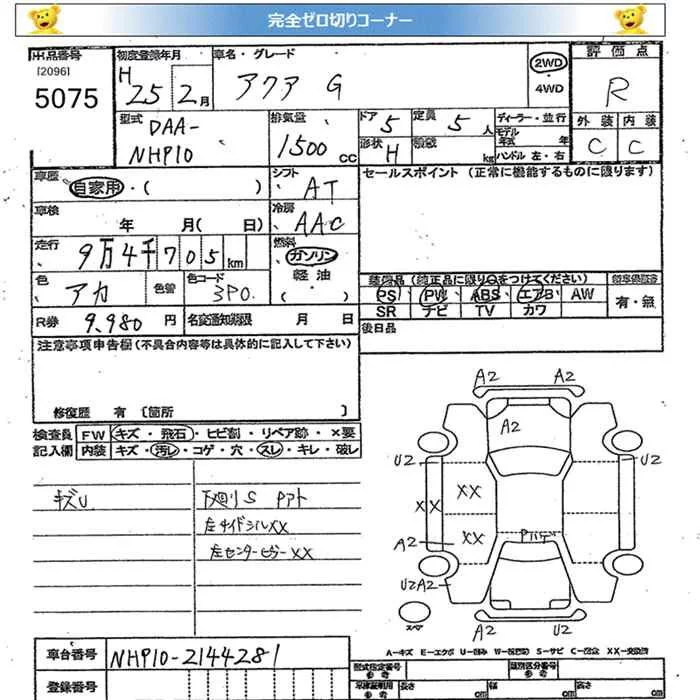 完全ゼロ切りコーナー
出品番号
[2096]
5075
初度登録年月
H 25 2月
車名・グレード
アクア G
2WD
・
4WD
評価点
R
型式
DAA-
NHP10
排気量
1500 CC
ドア 5
定員 5 人
形状 H
積載 kg
ディーラー・並行
モデル
年式 年
ハンドル 左・右
外装 内装
C C
車歴
自家用・( )
シフト
AT
セールスポイント (正常に機能するものに限ります)
車検
年 月( 日)
冷房
AAC
走行
9万4千705km
燃料
ガソリン
軽油
( )
色
アカ
色替
色コード
3P0.
装備品 (純正品に限り○をつけてください)
PS PW ABS エアB AW
SR ナビ TV カワ
有・無
R券 9,980 円
名変通知期限 月 日
後日品
注意事項申告欄(不具合内容等は具体的に記入して下さい)
修復歴 有 [箇所 ]
検査員
記入欄
FW キズ・飛石・ヒビ割・リペア跡・×要
内装 キズ・汚レ・コゲ・穴・スレ・キレ・破レ
キズU
下廻りS Pアト
左サイドシルXX
左センターピラーXX
A2 A2
A2
U2 U2
XX XX
XX
A2
U2A2
A2 U2
スペア
A-キズ E-エクボ U-凹み W-板跡 S-サビ C-腐食 XX-交換済
車台番号
NHP10-2144281
登録番号
型式指定番号
類別区分番号
参考
長さ cm
幅 cm
高さ cm